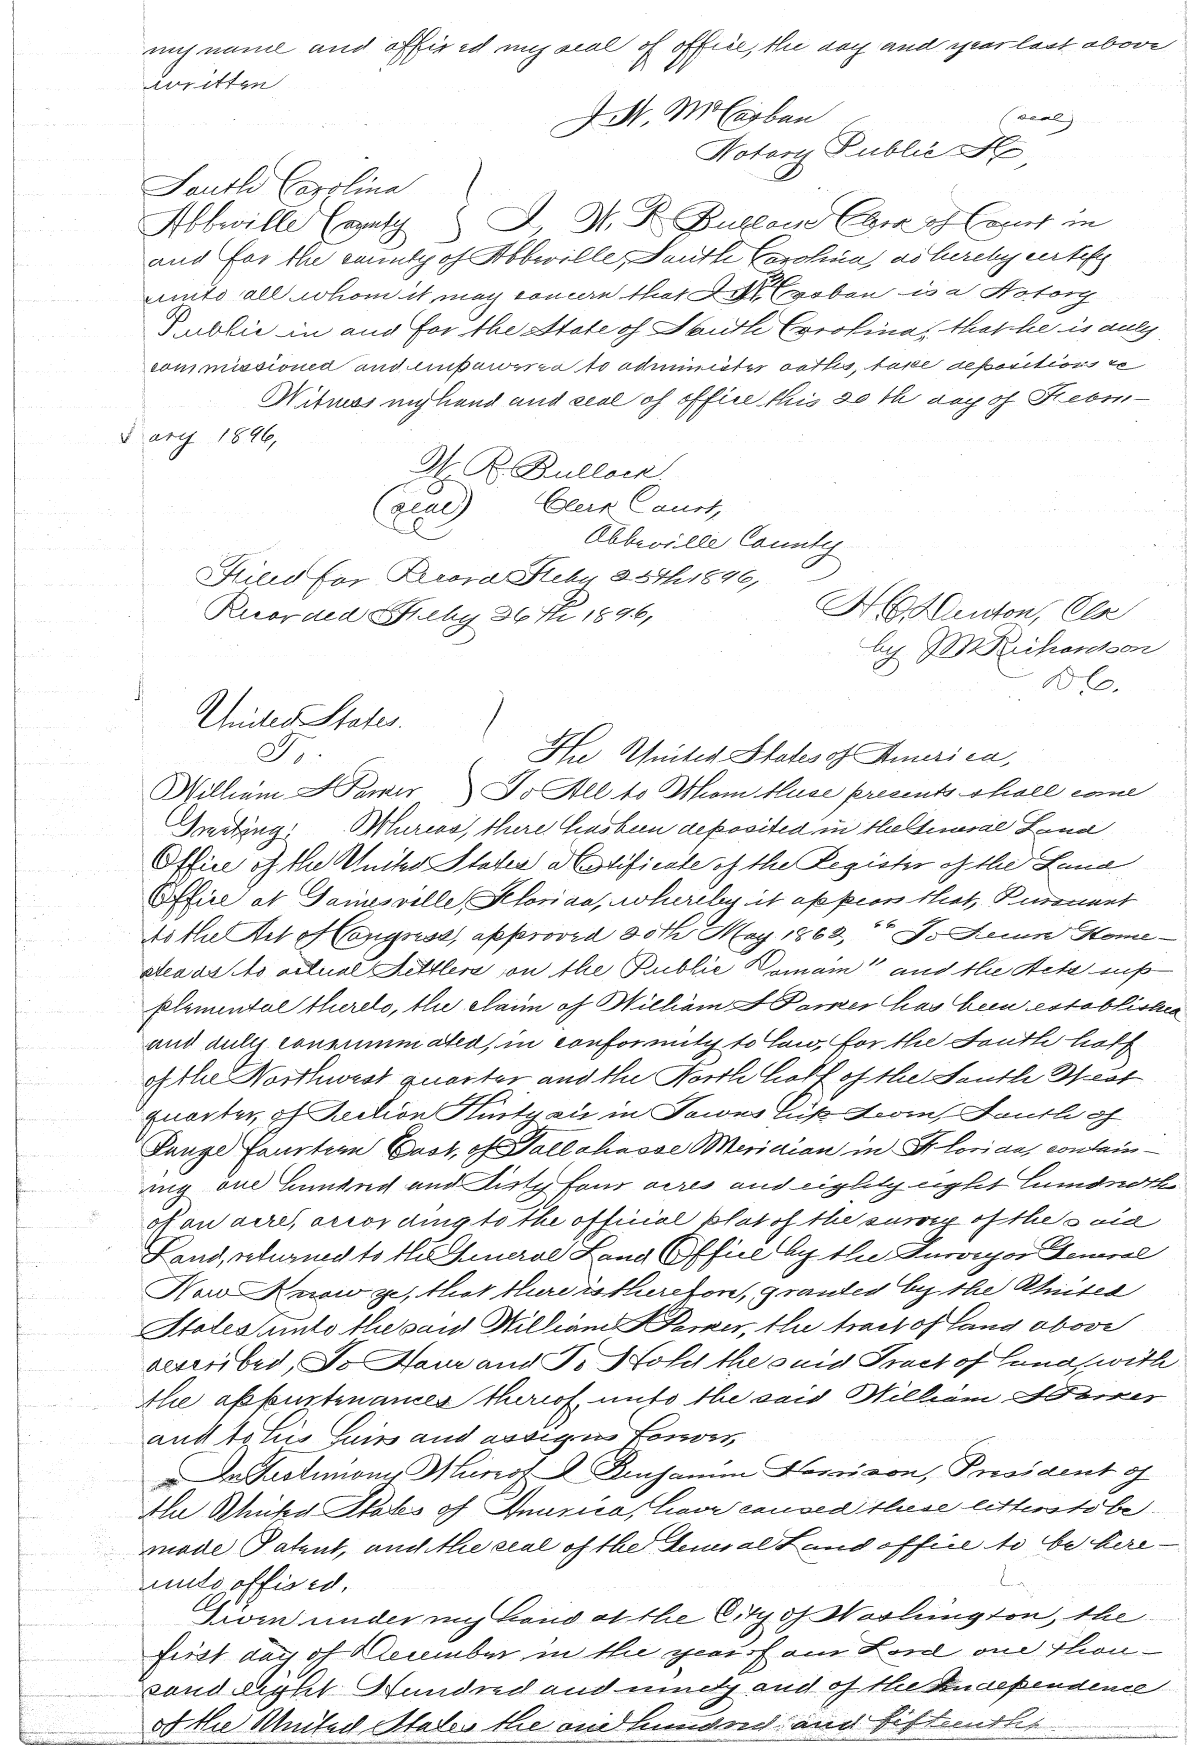 my name and affixed my seal of office, the day and year last above
written
(seal)
Notary Public SC,
South Carolina
Abbeville County } I, W. R. Bullock Clerk of Court in
and for the county of Abbeville, South Carolina, do hereby certify
unto all whom it may concern that is a Notary
Public in and for the State of South Carolina, that he is duly
commissioned and empowered to administer oaths, take depositions &c
Witness my hand and seal of office this 20th day of Febru-
ary 1896,
W. R. Bullock
(seal) Clerk Court,
Abbeville County
Filed for Record Feby 25th 1896,
Recorded Feby 26th 1896,
H.C. Denton, Clk
by J M Richardson
D C.
United States.
To.
The United States of America,
William Parker } To All to Whom these presents shall come
Greeting: Whereas, there has been deposited in the General Land
Office of the United States a Certificate of the Register of the Land
Office at Gainesville, Florida, whereby it appears that, Pursuant
to the Act of Congress, approved 20th May 1862, "To Secure Home-
steads to actual Settlers on the Public Domain" and the Acts sup-
plemental thereto, the claim of William Parker has been established
and duly consummated, in conformity to law, for the South half
of the Northwest quarter and the North half of the South West
quarter, of Section Thirty six in Township Seven, South of
Range fourteen East, of Tallahasse Meridian in Florida, contain-
ing one hundred and Sixty four acres and eighty eight hundredths
of an acre, according to the official plat of the survey of the said
Land, returned to the General Land Office by the Surveyor General
Now Know ye, that there is therefore, granted by the United
States unto the said William Parker, the tract of land above
described, To Have and To Hold the said Tract of land, with
the appurtenances thereof, unto the said William Parker
and to his heirs and assigns forever,
In Testimony Whereof I Benjamin Harrison, President of
the United States of America, have caused these letters to be
made Patent, and the seal of the General Land office to be here-
unto affixed.
Given under my hand at the City of Washington, the
first day of December in the year of our Lord one thou-
sand eight Hundred and ninety and of the Independence
of the United States the one hundred and fifteenth,